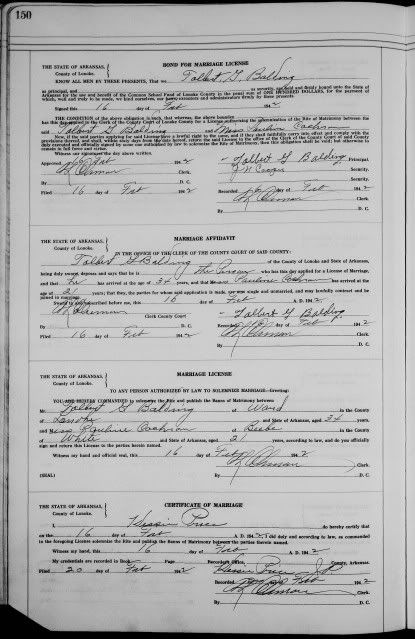 150
BOND FOR MARRIAGE LICENSE
THE STATE OF ARKANSAS,
County of Lonoke.
KNOW ALL MEN BY THESE PRESENTS, That we Talbert G. Balding
as principal, and security, are held and firmly bound unto the State of
Arkansas for the use and benefit of the Common School Fund of Lonoke County in the penal sum of ONE HUNDRED DOLLARS, for the payment of
which, well and truly to be made, we bind ourselves, our heirs, executors and administrators firmly by these presents.
Signed this 16 day of Feb 1942
THE CONDITION of the above obligation is such, that whereas, the above bounden
has this day applied to the Clerk of the County Court of Lonoke County for a License authorizing the solemnization of the Rite of Matrimony between the
said Talbert G Balding and Miss Pauline Cochran
Now, if the said parties applying for said License have a lawful right to the same, and if they shall faithfully carry into effect and comply with the
provisions thereof, and shall, within sixty days from the date hereof, return the said License to the office of the Clerk of the County Court of said County
duly executed and officially signed by some one authorized by law to solemnize the Rite of Matrimony, then this obligation shall be void; but otherwise to
remain in full force and virtue.
Witness our signatures the day above written.
Approved 16 Feb 1942 - Talbert G Balding, Principal.
Clerk. J W Cooper Security.
By D. C. Security.
Filed 16 day of Feb 1942 Recorded 16 Feb 1942
Clerk.
By D. C.
MARRIAGE AFFIDAVIT
THE STATE OF ARKANSAS,
County of Lonoke.
IN THE OFFICE OF THE CLERK OF THE COUNTY COURT OF SAID COUNTY:
I, Talbert G Balding of the County of Lonoke and State of Arkansas,
being duly sworn, deposes and says that he is the Person who has this day applied for a License of Marriage,
and that he has arrived at the age of 34 years, and that Miss Pauline Cochran has arrived at the
age of 21 years; that they, the parties for whom said application is made, are now single and unmarried, and may lawfully contract and be
joined in marriage.
Sworn to and subscribed before me, this 16 day of Feb A. D. 1942
- Talbert G Balding
Clerk County Court
By D. C. Recorded 16 day of Feb 1942
Filed 16 day of Feb 1942 Clerk.
By D. C.
MARRIAGE LICENSE
THE STATE OF ARKANSAS,
County of Lonoke.
TO ANY PERSON AUTHORIZED BY LAW TO SOLEMNIZE MARRIAGE—Greeting:
YOU ARE HEREBY COMMANDED to solemnize the Rite and publish the Banns of Matrimony between
Mr. Talbert G Balding of Ward in the County
of Lonoke and State of Arkansas, aged 34 years,
and Miss Pauline Cochran of Beebe in the County
of White and State of Arkansas, aged 21 years, according to law, and do you officially
sign and return this License to the parties herein named.
Witness my hand and official seal, this 16 day of Feb 1942
Clerk.
(SEAL) By D. C.
CERTIFICATE OF MARRIAGE
THE STATE OF ARKANSAS,
County of Lonoke.
I, Price do hereby certify that
on the 16 day of Feb A. D. 1942, I did duly and according to law, as commanded
in the foregoing License solemnize the Rite and publish the Banns of Matrimony between the parties herein named.
Witness my hand, this 16 day of Feb A. D. 1942
My credentials are recorded in Book Page Recorder's Office, County, Arkansas.
Filed 20 day of Feb 1942 Price J P
Recorded Feb 1942
Clerk.
By D. C.